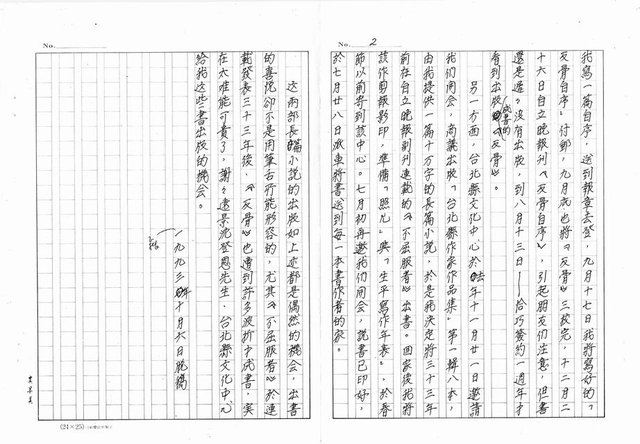 No. 2
我寫一篇自序，送到報社去登，九月十七日我將寫好的「
反骨自序」付郵，九月底也將《反骨》三校完，十二月二
十六日自立晚報刊《反骨自序》，引起朋友們注意，但書
還是遲遲沒有出版，到八月十三日——恰巧簽約一週年才
看到出版成書的《反骨》。
另一方面，台北縣文化中心於去年十一月廿一日邀請
我們開會，商議出版「台北縣作家作品集」第一輯八本，
由我提供一篇十萬字的長篇小說，於是我決定將三十三年
前在自立晚報副刊連載的《不屈服者》出書。回家後我將
該作剪報影印，準備「照片」與「生平寫作年表」，於春
節以前寄到該中心。七月初再邀我們開會，說書已印好，
於七月廿八日派車將書送到每一本書作者的家。
No.
這兩部長篇小說的出版如上述都是偶然的機會，出書
的喜悅卻不是用筆舌所能形容的，尤其《不屈服者》於連
載發表三十三年後，《反骨》也遭到許多波折才成書，實
在太難能可貴了，謝謝遠景沈登恩先生，台北縣文化中心
給我這些書出版的機會。
一九九三年十月六日脫稿
(24×25)